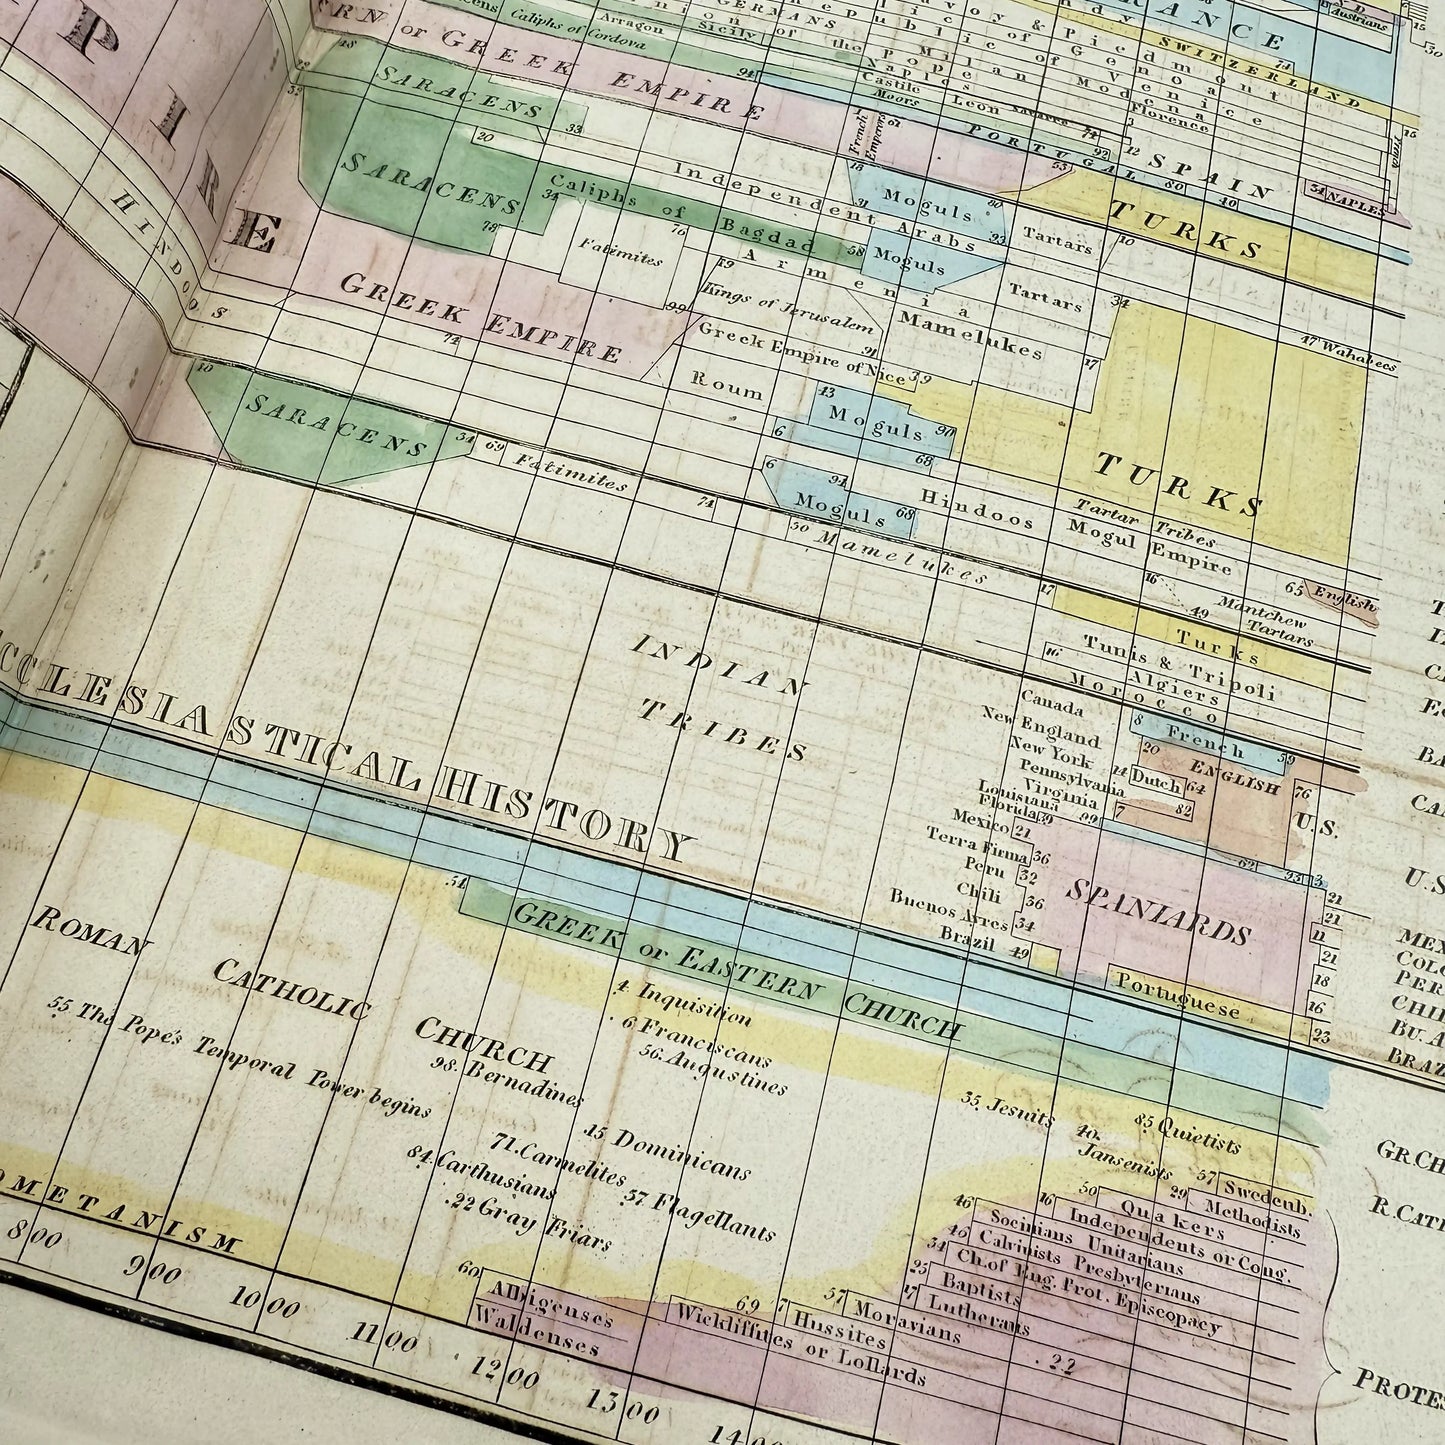 P
I
R
E
HINDOOS
or GREEK EMPIRE
GREEK EMPIRE
SARACENS
SARACENS
SARACENS
Caliphs of Cordova
Arragon
Sicily
GERMANS
Union of the Pope
Republic of Genoa
Savoy & Piedmont
Milan
Venice
Modena
Florence
Naples
Castile
Leon
Navarre
Moors
FRANCE
Austrians
SWITZERLAND
PORTUGAL
SPAIN
NAPLES
French Emperors
Independent Arabs
Caliphs of Bagdad
Fatimites
Armenia
Kings of Jerusalem
Greek Empire of Nice
Roum
Moguls
Moguls
Tartars
Tartars
TURKS
TURKS
Mamelukes
Wahabees
Moguls
Moguls
Hindoos
Tartar Tribes
Mogul Empire
English
Mantchew Tartars
Fatimites
Mamelukes
Turks
Tunis & Tripoli
Algiers
Morocco
INDIAN
TRIBES
Canada
New England
New York
Pennsylvania
Virginia
Louisiana
Florida
Mexico 21
Terra Firma 36
Peru 32
Chili 36
Buenos Ayres 34
Brazil 49
8 French 59
20 ENGLISH 76
14 Dutch 64
7 82
U.S.
SPANIARDS
Portuguese
ECCLESIASTICAL HISTORY
54 GREEK or EASTERN CHURCH
ROMAN CATHOLIC CHURCH
55 The Pope's Temporal Power begins
4. Inquisition
6 Franciscans
56. Augustines
98. Bernadines
15 Dominicans
71. Carmelites
84. Carthusians
37 Flagellants
22 Gray Friars
35. Jesuits
40. Jansenists
85 Quietists
57 Swedenb.
29 Methodists
50 Quakers
16 Independents or Cong.
46 Socinians Unitarians
Calvinists Presbyterians
34 Ch. of Eng. Prot. Episcopacy
25 Baptists
17 Lutherans
57 Moravians
7 Hussites
69 Wickliffites or Lollards
60 Albigenses
Waldenses
22
OMETANISM
800
900
1000
1100
1200
1300
1400
GR.CH
R.CAT
PROTES